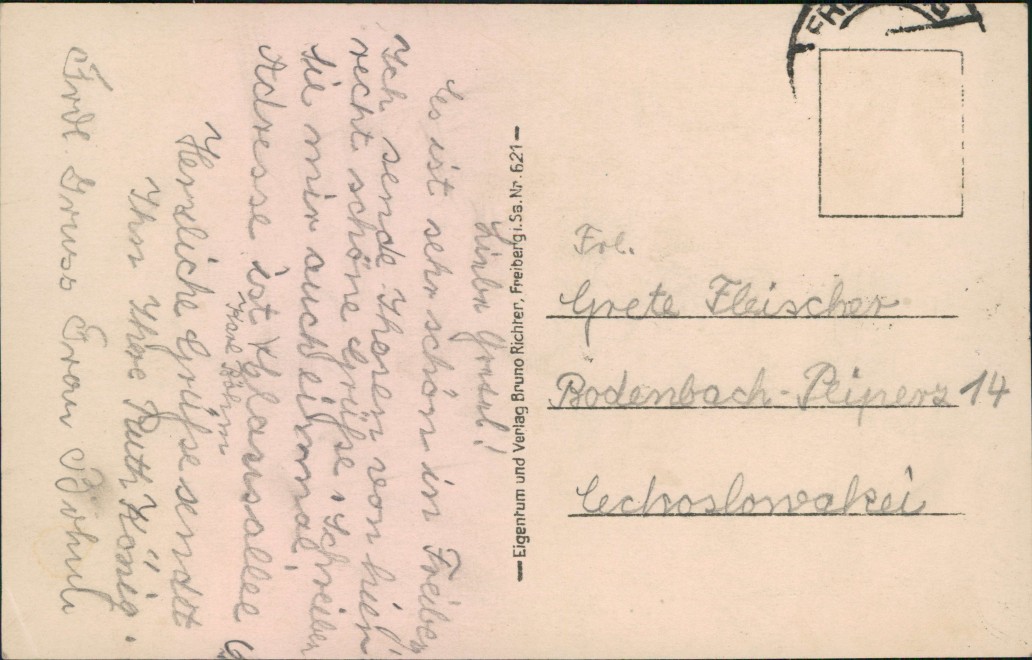 Liebe Gretel!
Es ist sehr schön in Freiberg
Ich sende Ihnen von hier
recht schöne Grüße, Schreiben
Sie mir auch einmal!
Adresse ist Klarasallee 6
Karl Böhm
Herzliche Grüße sendet
Ihre Ruth König.
Frdl. Gruss Frau Böhm
— Eigentum und Verlag Bruno Richter, Freiberg i. Sa. Nr. 621 —
Frl.
Grete Fleischer
Bodenbach-Peiperz 14
Cechoslowakei